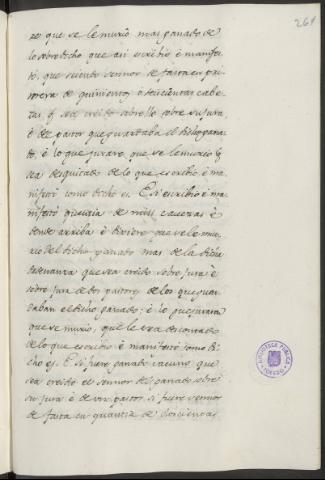 261
re que se le murió mas ganado de
lo sobredicho que asi escribio è manifes
tó, que siendo sennor de fasta en qua
de quinientas ò seiscientas cabe
zas, q sea creido sobre ello sobre su jura,
è de pastor que guardaba el dicho gana
do, è lo que jurare que se le murio q
sea desquitado de lo que escribio è ma
nifestó como dicho es. E si escribio è ma
nifestó quantia de mill cavezas è
dende arriba è dixiere que se le mu
rio del dicho ganado mas de la dicha
que sea creido sobre jura è
sobre jura de dos pastores de los que guar
daban el dicho ganado, è lo que jurara
que se murió, que le sea descontado
de lo que escribio è manifestó como di
cho es. E si fuere ganado vacuno que
sea creido el sennor del ganado sobre
su jura è de un pastor si fuere sennor
de fasta en quantia de doscientas
BIBLIOTECA PÚBLICA
TOLEDO